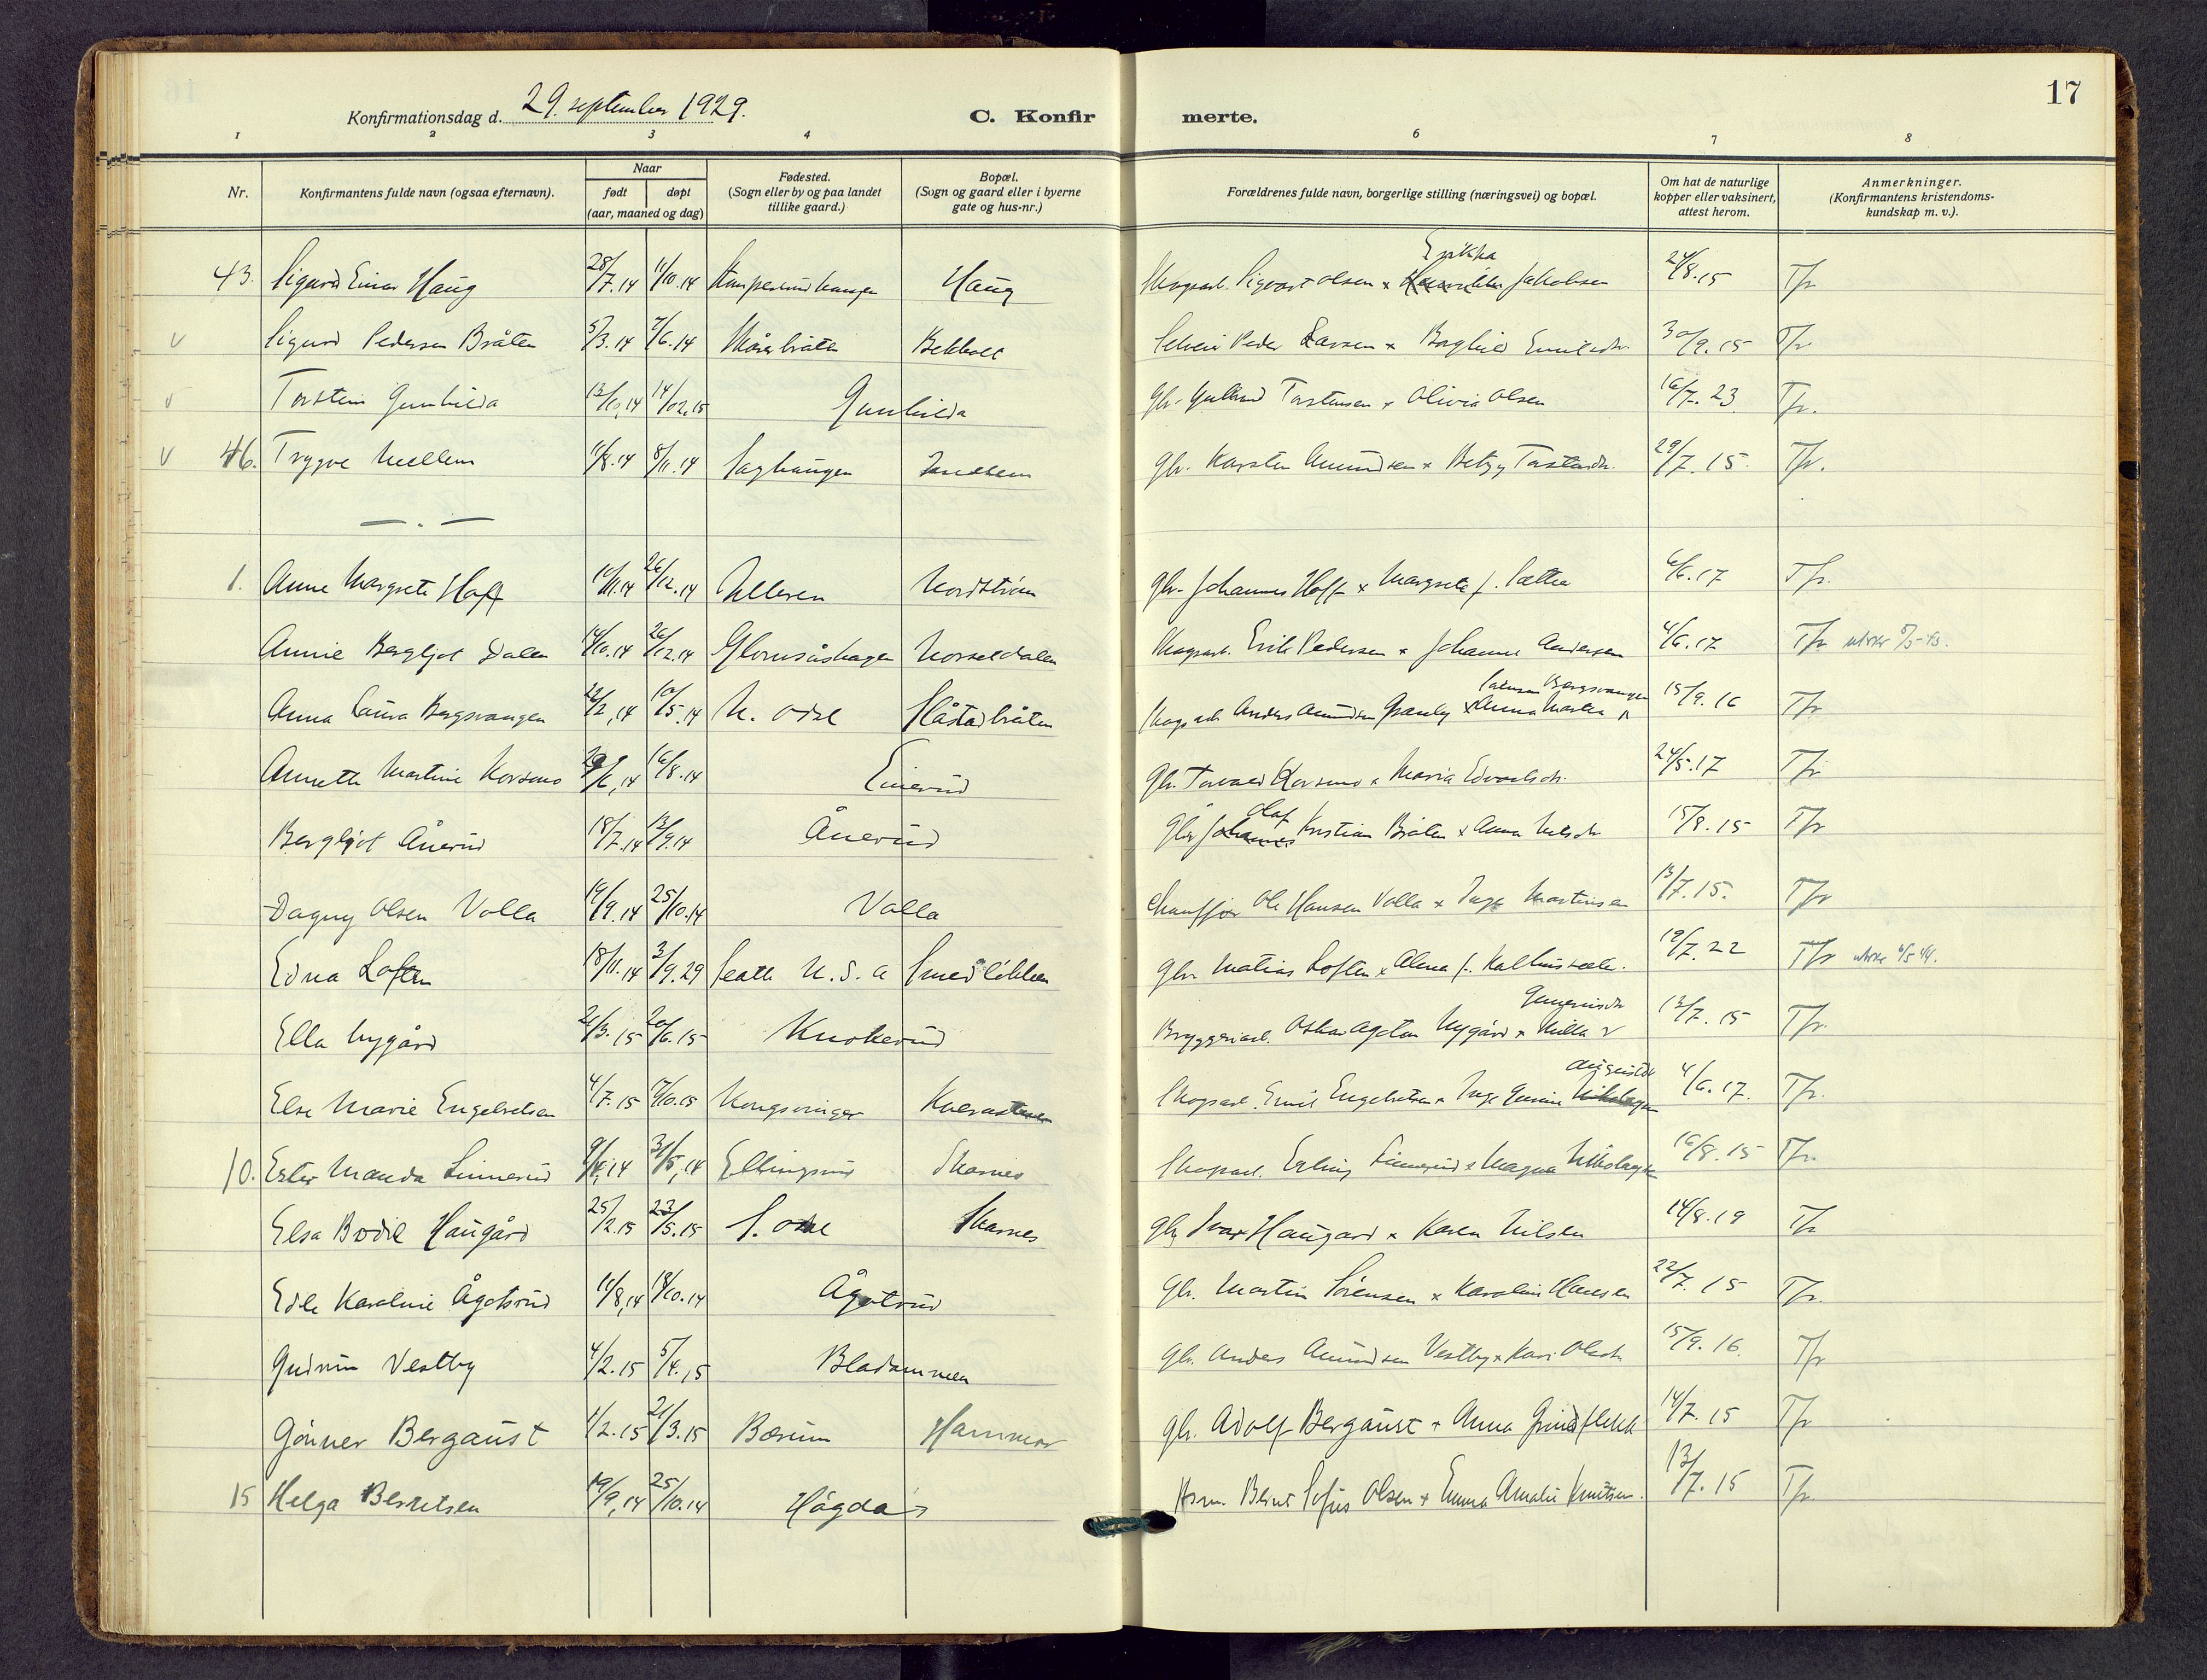 Konfirmationsdag d. 29. september 1929.
C. Konfir merte.
17
1 2 3 4 6 7 8
Nr.
Konfirmantens fulde navn (ogsaa efternavn).
Naar
født døpt
(aar, maaned og dag)
Fødested.
(Sogn eller by og paa landet
tillike gaard.)
Bopæl.
(Sogn og gaard eller i byerne
gate og hus-nr.)
Forældrenes fulde navn, borgerlige stilling (næringsvei) og bopæl.
Om hat de naturlige
kopper eller vaksinert,
attest herom.
Anmerkninger.
(Konfirmantens kristendoms-
kundskap m. v.).
Erikka
43. Sigurd Einar Haug 28/7.14 11/10.14 Haug Skogsarb. Sigvart Olsen x Jakobsen 24/8.15 Tfr
v Sigurd Pedersen Bråten 5/3.14 7/6.14 Bekholt Peder Larsen x Borghild Emilsdtr. 30/9.15 Tfr
v Torstein Gunhilda 13/10.14 14/02.15 Gunhilda Gbr. Gulbrand Torstensen x Olivia Olsen 16/7.23 Tfr.
v 46. Trygve Mellem 11/8.14 8/11.14 Saghaugen Mellem Gbr. Karsten Amundsen x Betzy Torstensdtr. 29/7.15 Tfr.
— . —
1. Anne Margrete Hoff 10/11.14 26/12.14 Ulleren Nordstrøm Gbr. Johannes Hoff x Margrete f. Sætha 6/6.17 Tfr.
Annie Bergljot Dalen 14/10.14 26/12.14 Glomsåshagen Norseidalen Skogsarb. Erik Pedersen x Johanne Andersen 4/6.17 Tfr
Bergsvangen
Anna Laura Bergsvangen 22/2.14 10/5.14 N. Odal Slåstadbråten Skogsarb. Anders Amundsen Granby x Anna Marthea 15/9.16 Tfr
Annette Martine Korsmo 29/6.14 16/8.14 Einerud Gbr. Torvald Korsmo x Maria Edvardsdtr. 24/5.17 Tfr
Olaf
Bergljot Ånerud 18/7.14 13/9.14 Ånerud Gbr Johannes Kristian Bråten x Anna Nilsdtr 15/8.15 Tfr
Dagny Olsen Volla 19/9.14 25/10.14 Volla Chauffør Ole Hansen Volla x Inga Martinsen 13/7.15. Tfr
Edna Loften 18/11.14 3/9.29 Seatle U.S.A Smedløkken Gbr. Matias Loften x Alma f. 19/7.22 Tfr
Ella Nygård 21/3.15 20/6.15 Knokerud Bryggeriarb. Oskar Agaton Nygård x Milla 13/7.15 Tfr.
Augustdtr
Else Marie Engebretsen 4/7.15 17/10.15 Kongsvinger Skogsarb. Emil Engebretsen x Inga Gurine Nikolaysen 4/6.17 Tfr.
10. Ester Manda Linnerud 9/4.14 31/5.14 Ellingsrud Skarnes Skogsarb. Erling Linnerud x Magna Nikolaysen 16/8.15 Tfr.
Elsa Bodil Haugård 25/2.15 23/5.15 S. Odal Skarnes Gbr Ivar Haugård x Karen Nilsen 14/8.19 Tfr
Edle Karoline Ågotsrud 11/8.14 18/10.14 Ågotsrud Gbr. Martin Sørensen x Karoline Hansen 22/7.15 Tfr.
Gudrun Vestby 4/2.15 5/4.15 Gbr. Anders Amundsen Vestby x Kari Olsdtr 15/9.16. Tfr
Gønner Bergaust 1/2.15 21/3.15 Bærum Hammer Gbr. Adolf Bergaust x Anna Grindflekk 14/7.15 Tfr
15 Helga Berntsen 19/9.14 25/10.14 Høgda Hsm. Bernt Sofus Olsen x Emma Amalie Knutsen. 13/7.15 Tfr.